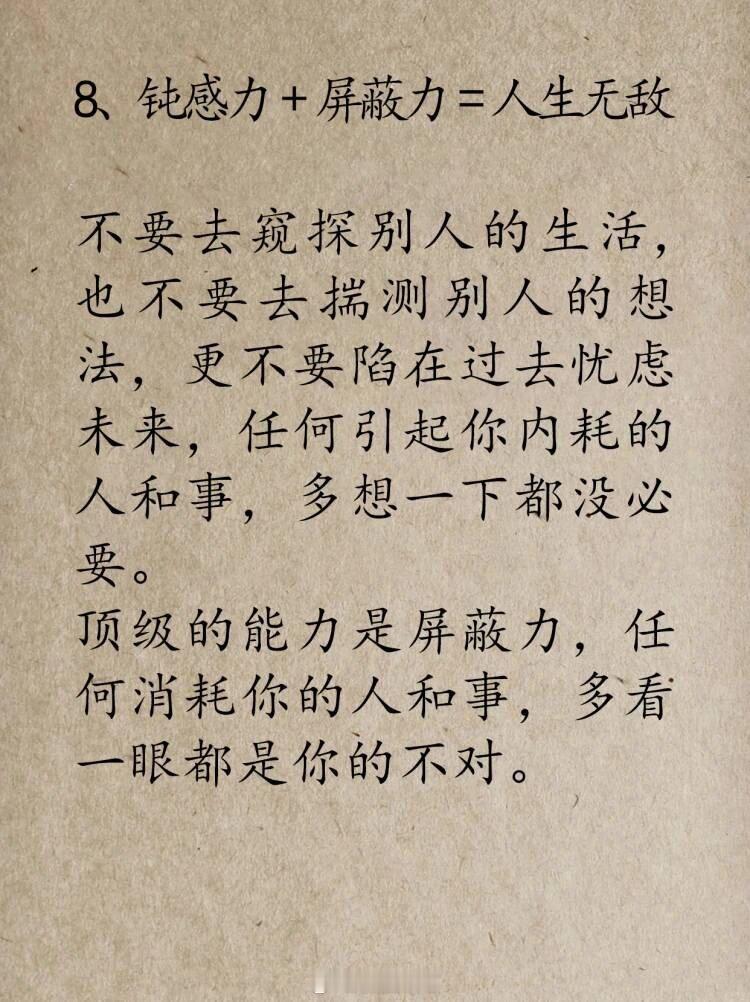 8、钝感力+屏蔽力=人生无敌
不要去窥探别人的生活，
也不要去揣测别人的想
法，更不要陷在过去忧虑
未来，任何引起你内耗的
人和事，多想一下都没必
要。
顶级的能力是屏蔽力，任
何消耗你的人和事，多看
一眼都是你的不对。